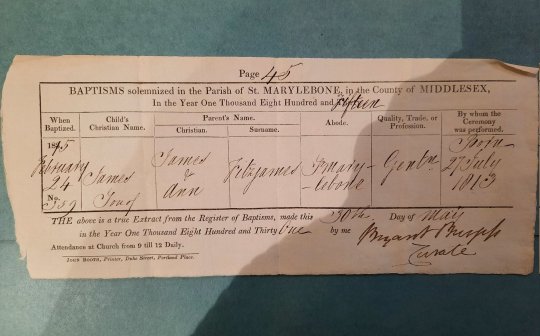 Page 45
BAPTISMS solemnized in the Parish of St. MARYLEBONE, in the County of MIDDLESEX,
In the Year One Thousand Eight Hundred and Fifteen
When Baptized. Child's Christian Name. Parent's Name. Christian. Surname. Abode. Quality, Trade, or Profession. By whom the Ceremony was performed.
1815 February 24 No. James Son of James & Ann Fitzjames Stmary lebone Gentn. Born 27 July 1813
THE above is a true Extract from the Register of Baptisms, made this 30th Day of May
in the Year One Thousand Eight Hundred and Thirty One by me Bryant Burgess
Attendance at Church from 9 till 12 Daily. Curate
JOHN BOOTH, Printer, Duke Street, Portland Place.